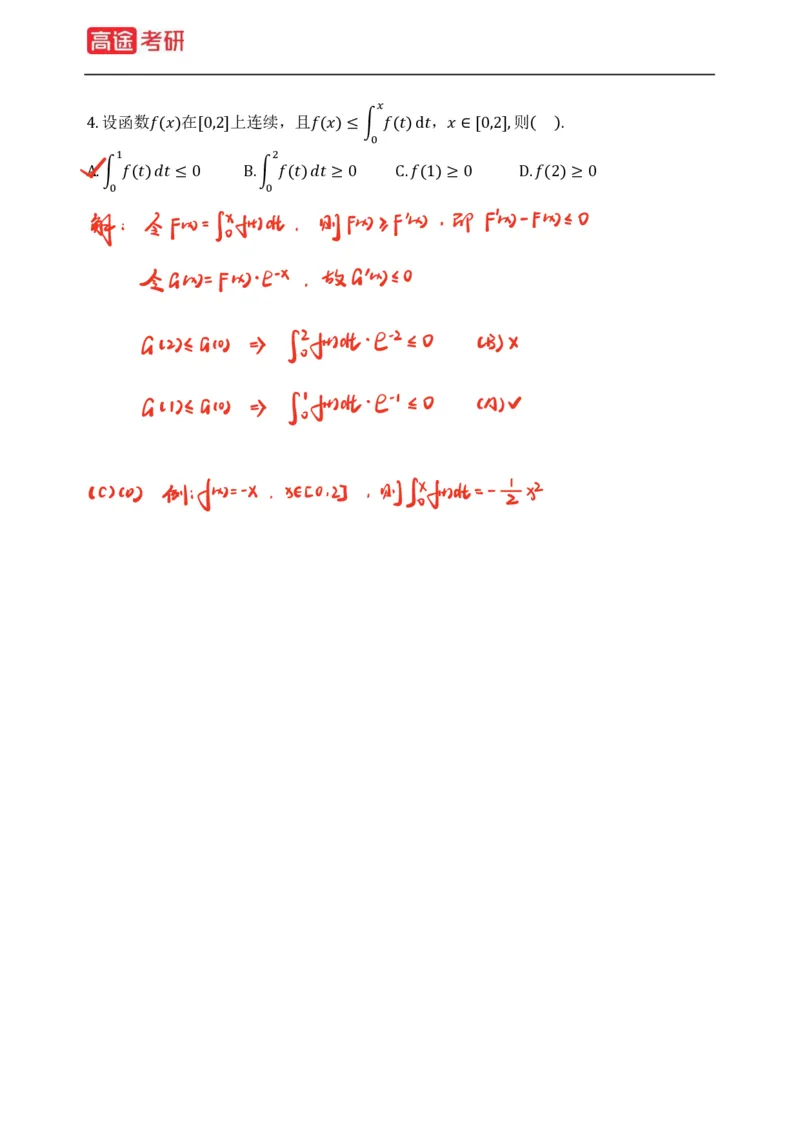 高途考研
4.设函数f(x)在[0,2]上连续，且f(x) ≤ ∫₀ˣ f(t) dt，x ∈ [0,2],则(   ).
A.∫₀¹ f(t)dt ≤ 0   B.∫₀² f(t)dt ≥ 0   C.f(1) ≥ 0   D.f(2) ≥ 0
解：令F(x)=∫₀ˣ f(t)dt，则F(x)≥F'(x)，即 F'(x)-F(x)≤0
令G(x)=F(x)·e⁻ˣ，故G'(x)≤0
G(2)≤G(0) ⇒ ∫₀² f(t)dt·e⁻² ≤0 (B)×
G(1)≤G(0) ⇒ ∫₀¹ f(t)dt·e⁻¹ ≤0 (A)✓
(C)(D) 例:f(x)=-x，x∈[0,2]，则∫₀ˣ f(t)dt=-1/2 x²